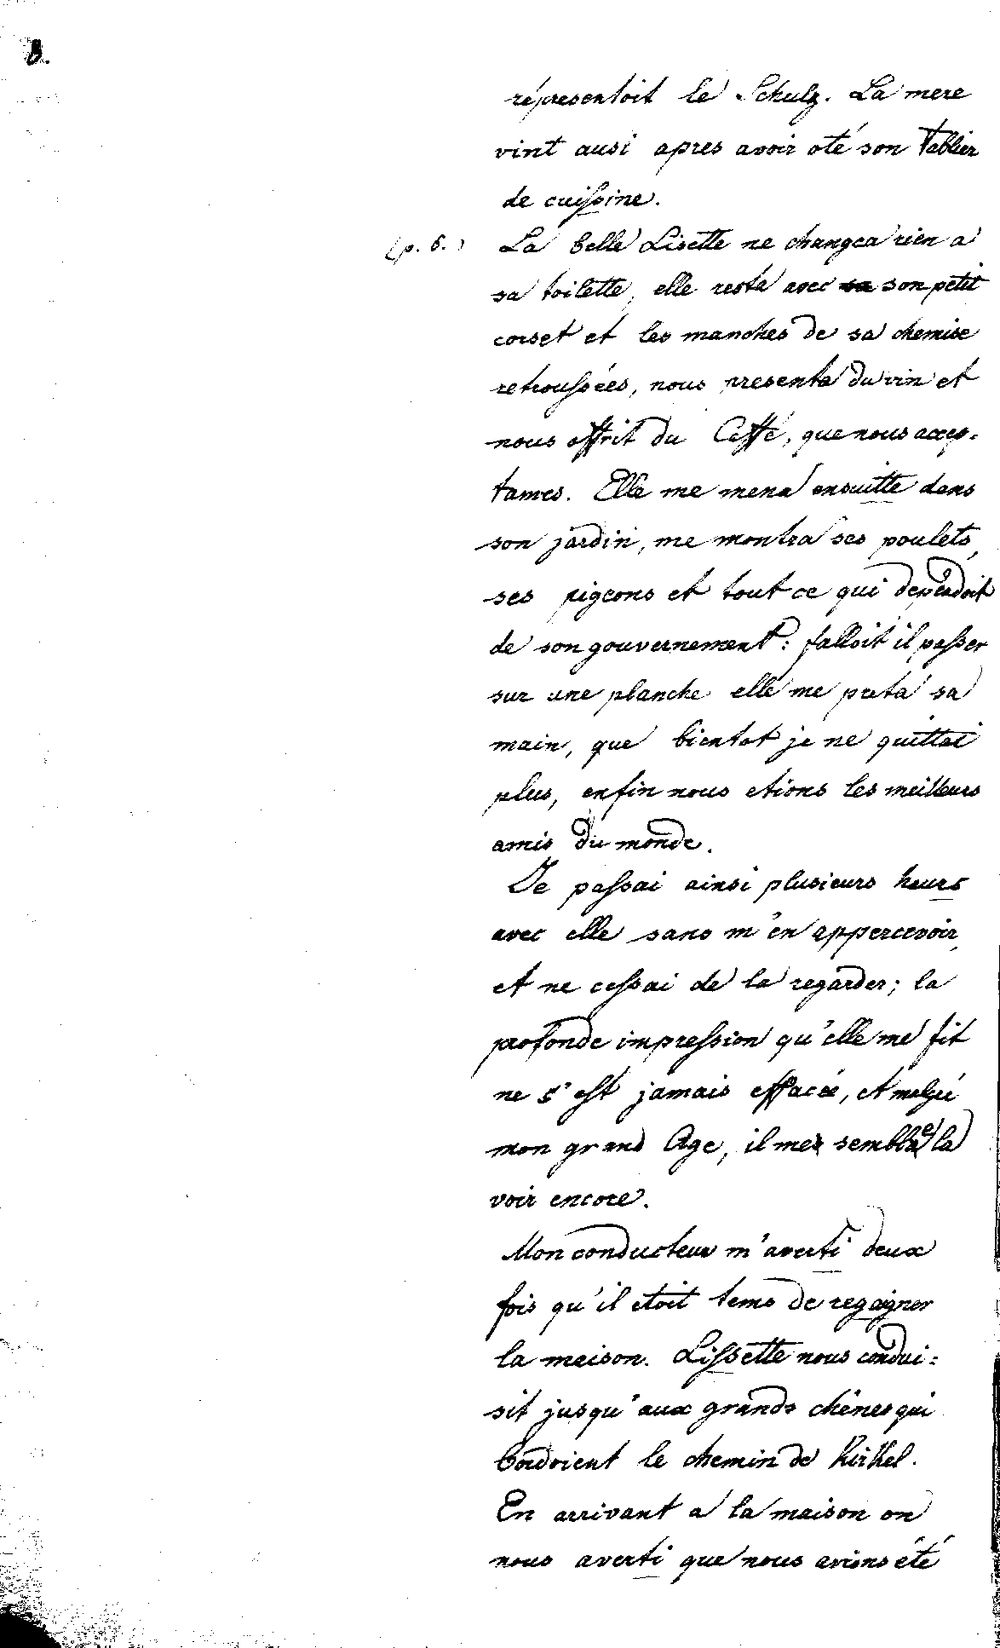 8.
répresentoit le Schulz. La mere
vint ausi apres avoir oté son Tablier
de cuissine.
(p. 6.) La belle Lisette ne changea rien a
sa toilette, elle resta avec sa son petit
corset et les manches de sa chemise
retroussées, nous presenta du vin et
nous offrit du Caffé, que nous accep=
tames. Elle me mena ensuitte dans
son jardin, me montra ses poulets,
ses pigeons et tout ce qui dependoit
de son gouvernement: falloit il passer
sur une planche elle me preta sa
main, que bientot je ne quittai
plus, enfin nous etions les meilleurs
amis du monde.
Je passai ainsi plusieurs heurs
avec elle sans m'en appercevoir,
et ne cessai de la regarder; la
profonde impression qu'elle me fit
ne s'est jamais effacée, et malgré
mon grand Age, il me semble la
voir encore.
Mon conducteur m'averti deux
fois qu'il etoit tems de regaigner
la maison. Lissette nous condui=
sit jusqu'aux grands chênes qui
bordoient le chemin de Kirkel.
En arrivant a la maison on
nous averti que nous avions été